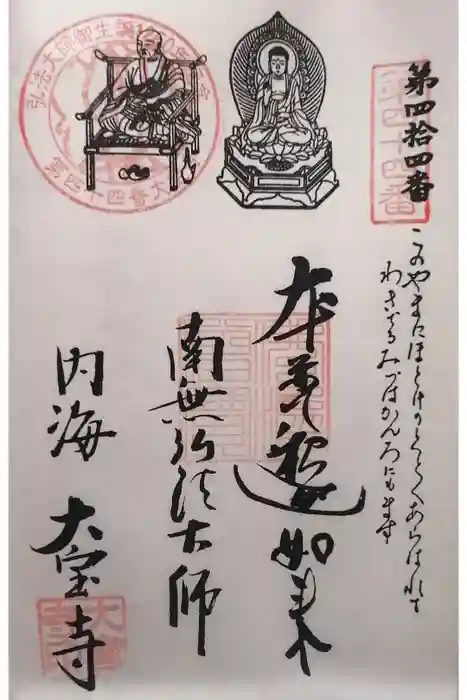 第四拾四番
第四十四番
このやまにほとけのくどくあらはれて
わきづるみづはかんろにもます
本尊釈迦如来
南無弘法大師
内海 大宝寺
弘法大師御生誕1250年記念
第四十四番大